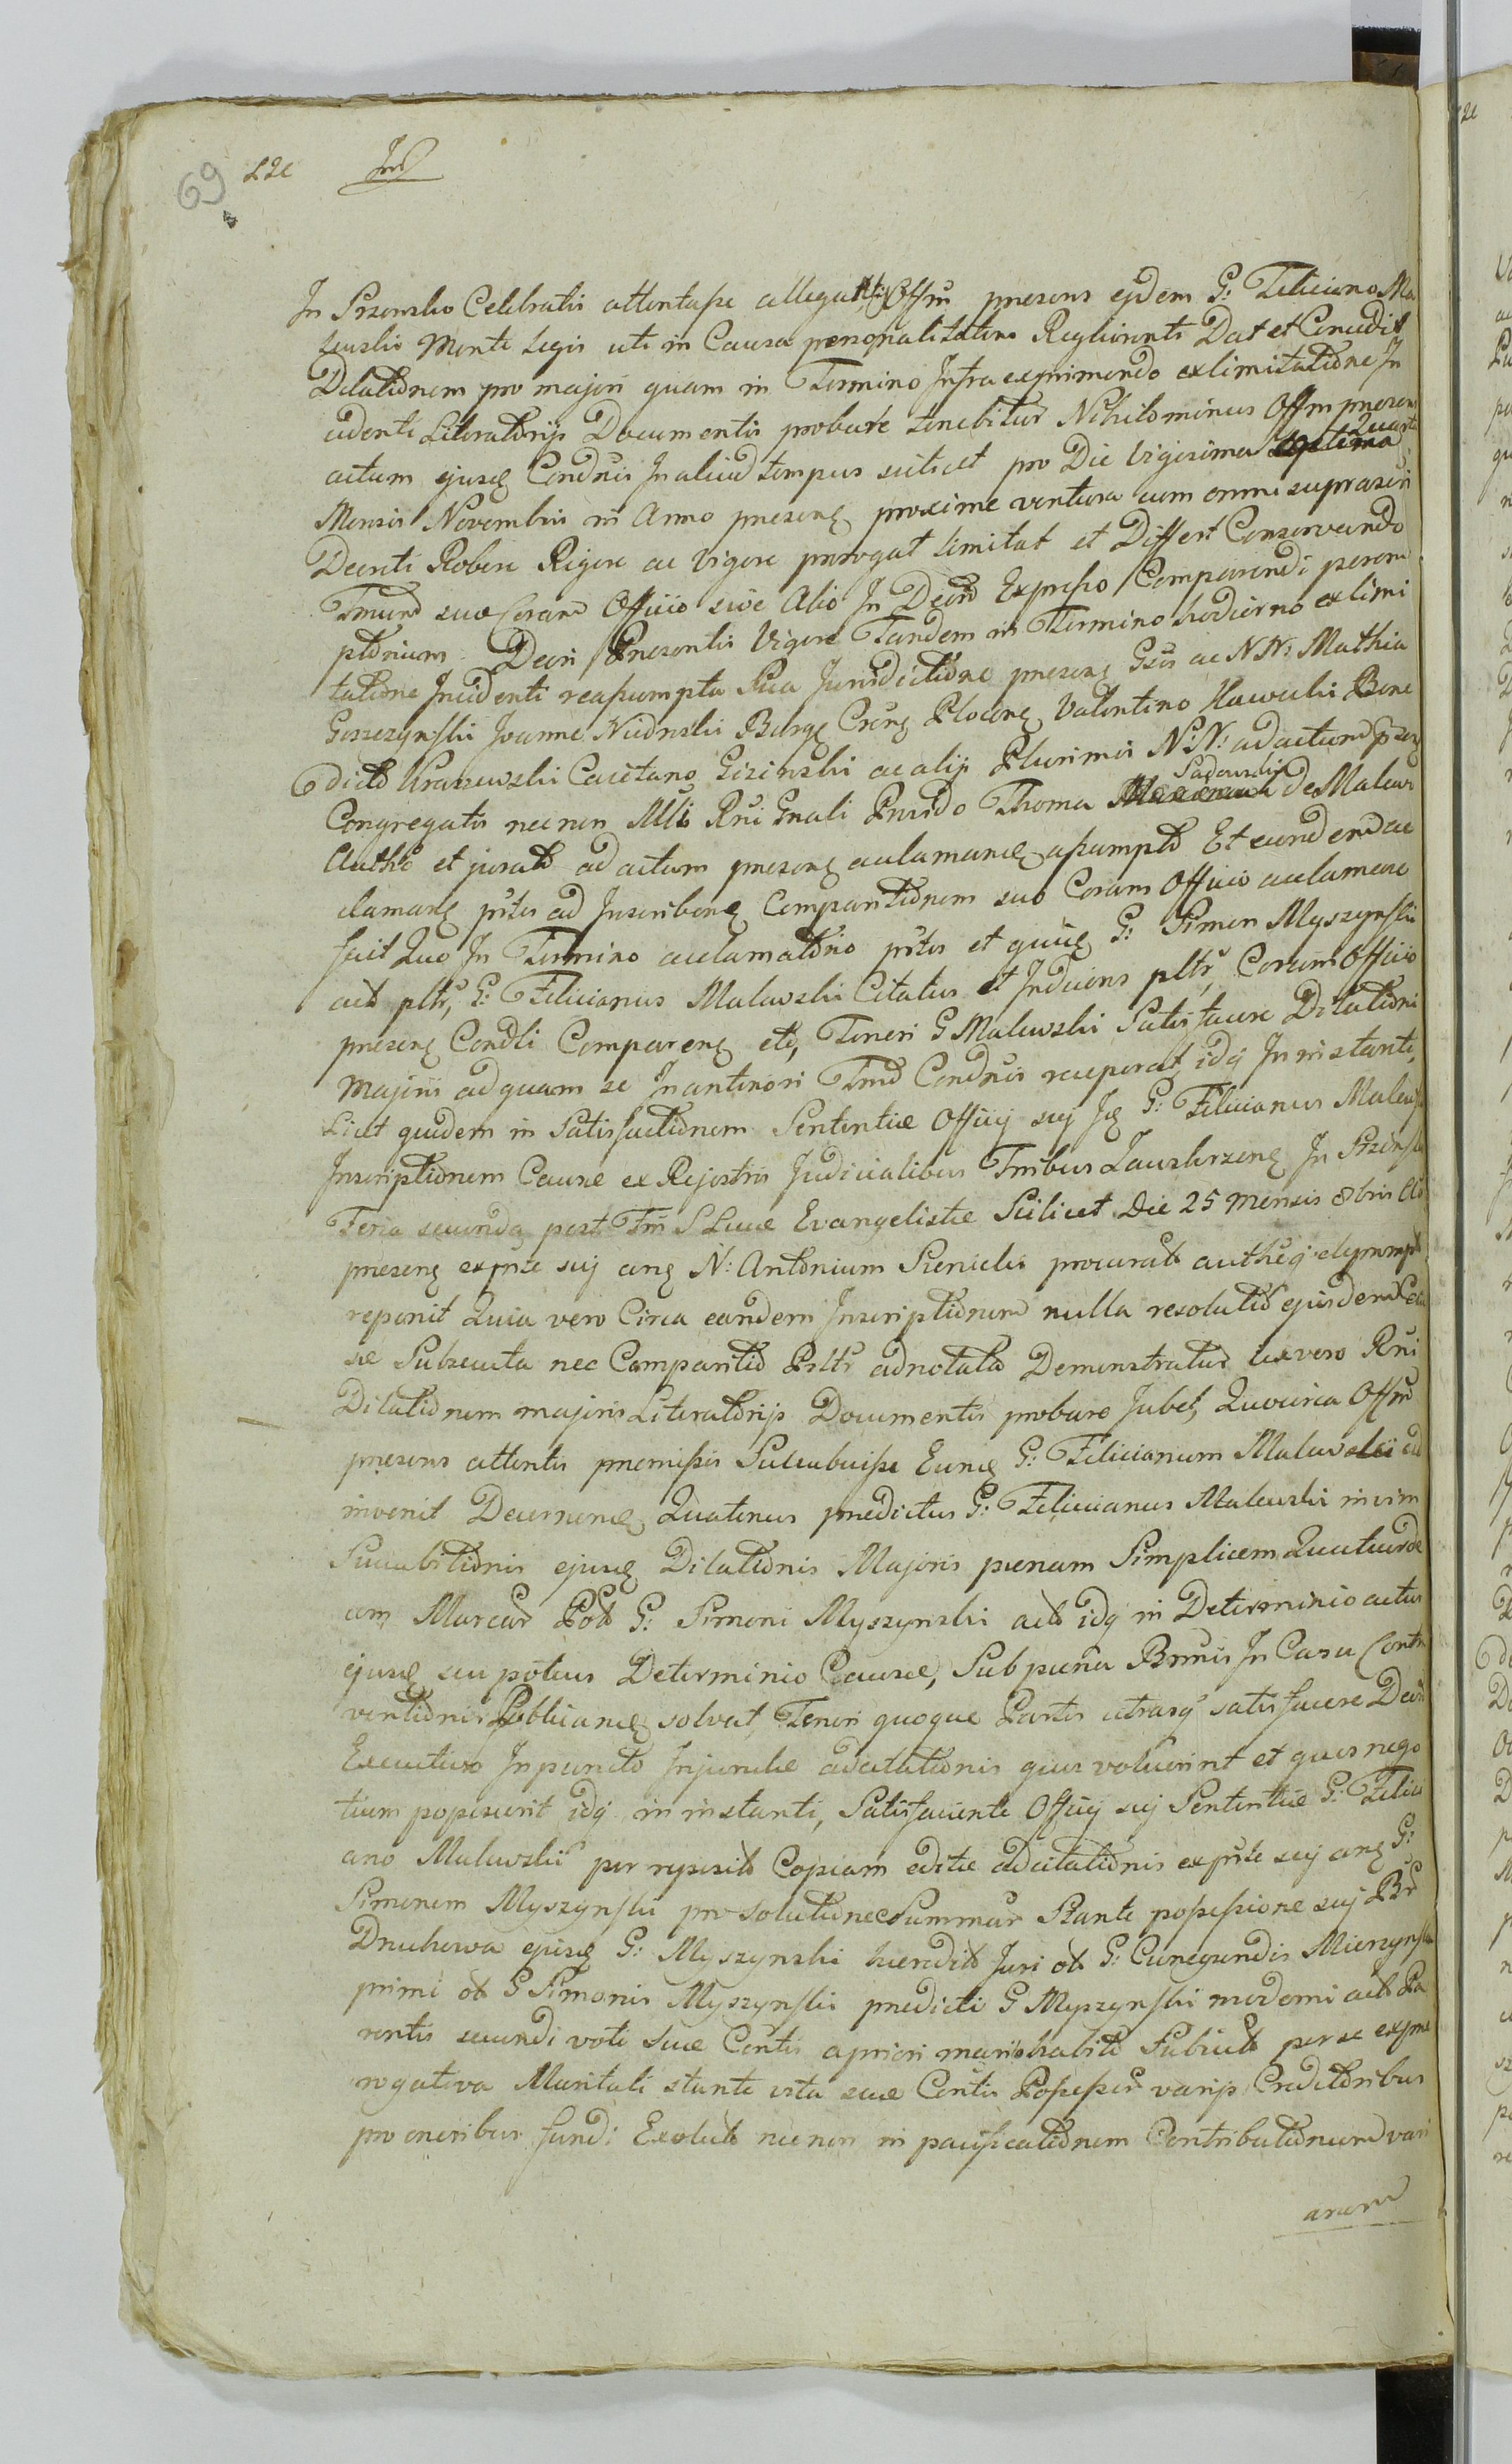 69
In Srzensko Celebratis attentasse allegat Offm presens ejdem G: Feliciano Ma
lewski Mente Legis uti in Causa personalitatem Regliorenti Dat et Concedit
Dilationem pro majori quam in Termino Infra exprimendo ex limitatione In
cidenti Literatorijs Documentis probare tenebitur Nihilominus Offm presens
actum ejusq Condnis In aliud tempus scilicet pro Die Vigesima Quarta
Mensis Novembris in Anno presenq proxime ventura cum omni suprascri
Decreti Robore Rigore ac Vigore prorogat limitat et Differt Conservando
Tmum suo Coram Officio sive Alio In Decro Expresso Comparendi perem
ptorium Decri Presentis Vigore Tandem in Termino hodierno ex limi
tatione Incidenti reassumpta Sua Jurisdictione presenq Gsis ac NN: Mathia
Goszczynski Joanne Niedrski Burgq Crenq Plocenq Valentino Kawecki Bene
dicto Kraszewski Caietano Gizinski ac alijs Plurimis NN: ad actum psenq
Congregatis nec non Mli Rni Gnali Provido Thoma Sadowski de Malew
Autho et jurato ad actum presenq aclamanq assumpto Et eundem ac
clamanq ptes ad Inscribenq Comparitionem suo Coram Officio acclamare
fecit Quo In Termino acclamatono ptes et quidq G: Simon Myszynski
act pltr, G: Felicianus Malewski Citatus et Inducens pltr, Coram Officio
presenq Condli Comparenq etc, Teneri G Malewski Satisfacere Dilationi
Majori ad quam se In anteriori Tmo Condnis receperat, idq In instanti,
Licet quidem in Satisfactionem Sententiæ Officij sui Jq G: Felicianus Malews
Inscriptionem Causæ ex Rejestris Judicialibus Tribus Zauskrzenq In Srzensk
Feria secunda post Fm S Lucæ Evangelistæ Scilicet Die 25 Mensis 8bris A
presenq expte sui anq N: Antonium Sienicki procurato autheq depromp
reponit Quia vero Circa eandem Inscriptionem nulla resolutio ejusdem Cau
sæ Subsecuta nec Comparitio Pltr adnotata Demonstratur Lex vero Rni
Dilationem majoris Literatorijs Documentis probare Jubet, Quocirca Offm
presens attentis premissis Succubuisse Eunq G: Felicianum Malewski ad
invenit Decernenq Quatenus predictus G: Felicianus Malewski in vim
Succubitionis ejusq Dilationis Majoris pœnam Simplicem Quatuorde
cem Marcar Pol G: Simoni Myszynski act idq in Determinio actus
ejusq seu potius Determinio Causæ, Sub pœna Bannis In Casu Contra
ventionis Publicanq solvat, Teneri quoque Partes utrasq satisfacere Decr
Executivo In puncto Injunctæ adcitationis quas voluerint et quas nego
tium poposcerit idq in instanti, Satisfaciente Officij sui Sententiæ G: Felici
ano Malewski per reposito Copiam editæ adcitationis expte sui anq G:
Simonem Myszynski pro Solutione Summar Stante possessione sui Br
Druchowa ejusq G: Myszynski heredit Juri ol G: Cunegundis Mierzyns
primi ol G Simonis Myszynski predicti G Myszynski moderni act Pa
rentis secundi voti Suæ Contis a priori marito habito Subiect per se ex pre
rogativa Maritali stante vita suæ Contis Possessor varijs Creditoribus
pro oneribus fundi Exolut nec non in pacificationem Contributionum vari
arum